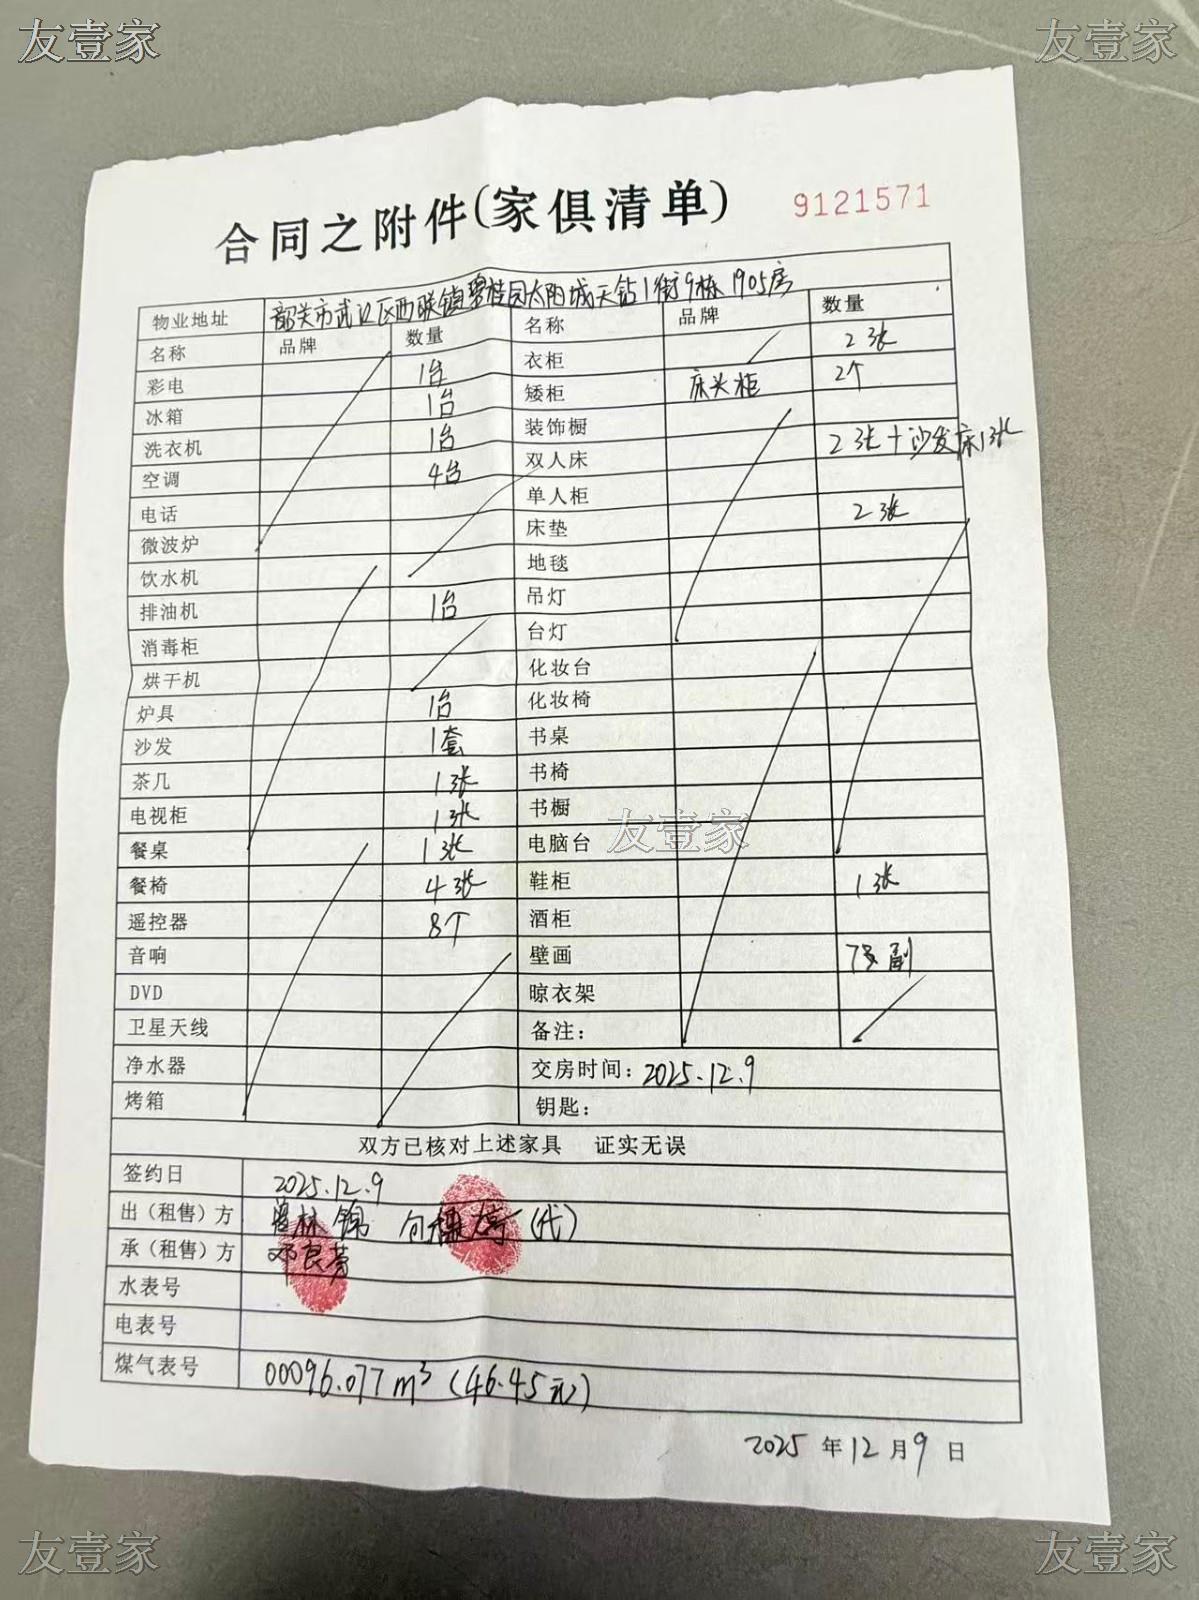 友壹家 友壹家
合同之附件(家俱清单) 9121571
物业地址 韶关市武江区西联镇碧桂园太阳城天钻1街9栋1905房
名称 品牌 数量 名称 品牌 数量
彩电 1台 衣柜 2张
冰箱 1台 矮柜 床头柜 2个
洗衣机 1台 装饰橱
空调 4台 双人床 2张+沙发床1张
电话 单人柜
微波炉 床垫 2张
饮水机 地毯
排油机 1台 吊灯
消毒柜 台灯
烘干机 化妆台
炉具 1台 化妆椅
沙发 1套 书桌
茶几 1张 书椅
电视柜 1张 书橱
餐桌 1张 电脑台 友壹家
餐椅 4张 鞋柜 1张
遥控器 8个 酒柜
音响 壁画 副
DVD 晾衣架
卫星天线 备注：
净水器 交房时间：2025.12.9
烤箱 钥匙：
双方已核对上述家具 证实无误
签约日 2025.12.9
出（租售）方 (代)
承（租售）方 邓良芳
水表号
电表号
煤气表号 00096.077m³(46.45元)
2025年12月9日
友壹家 友壹家